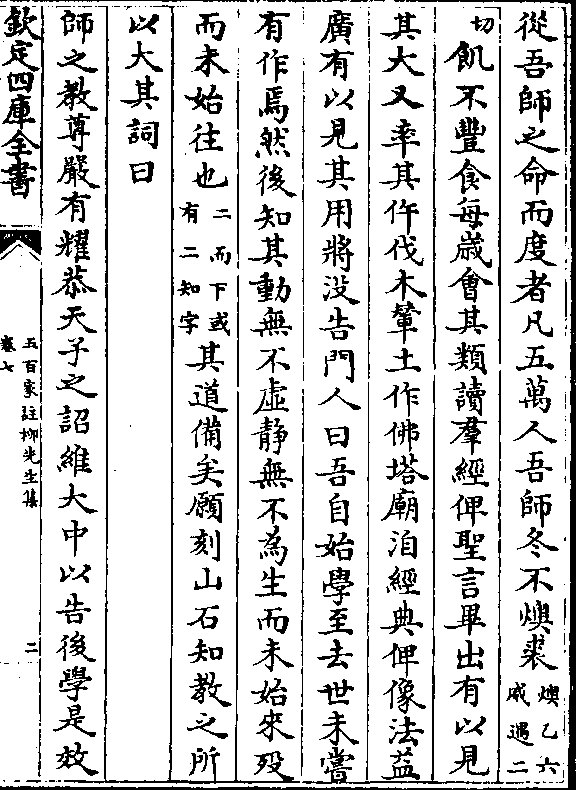 從吾師之命而度者凡五萬人吾師冬不燠裘燠乙六戚遇二
切飢不豐食每歲會其類讀羣經俾聖言畢出有以見
其大又率其伜伐木輦土作佛塔廟洎經典俾像法益
廣有以見其用將没告門人曰吾自始學至去世未嘗
有作焉然後知其動無不虛静無不為生而未始來殁
而未始往也二而下或有二知字其道備矣願刻山石知教之所
以大其詞曰
師之教尊嚴有耀恭天子之詔維大中以告後學是效
欽定四庫全書
五百家註柳先生集
卷七
二